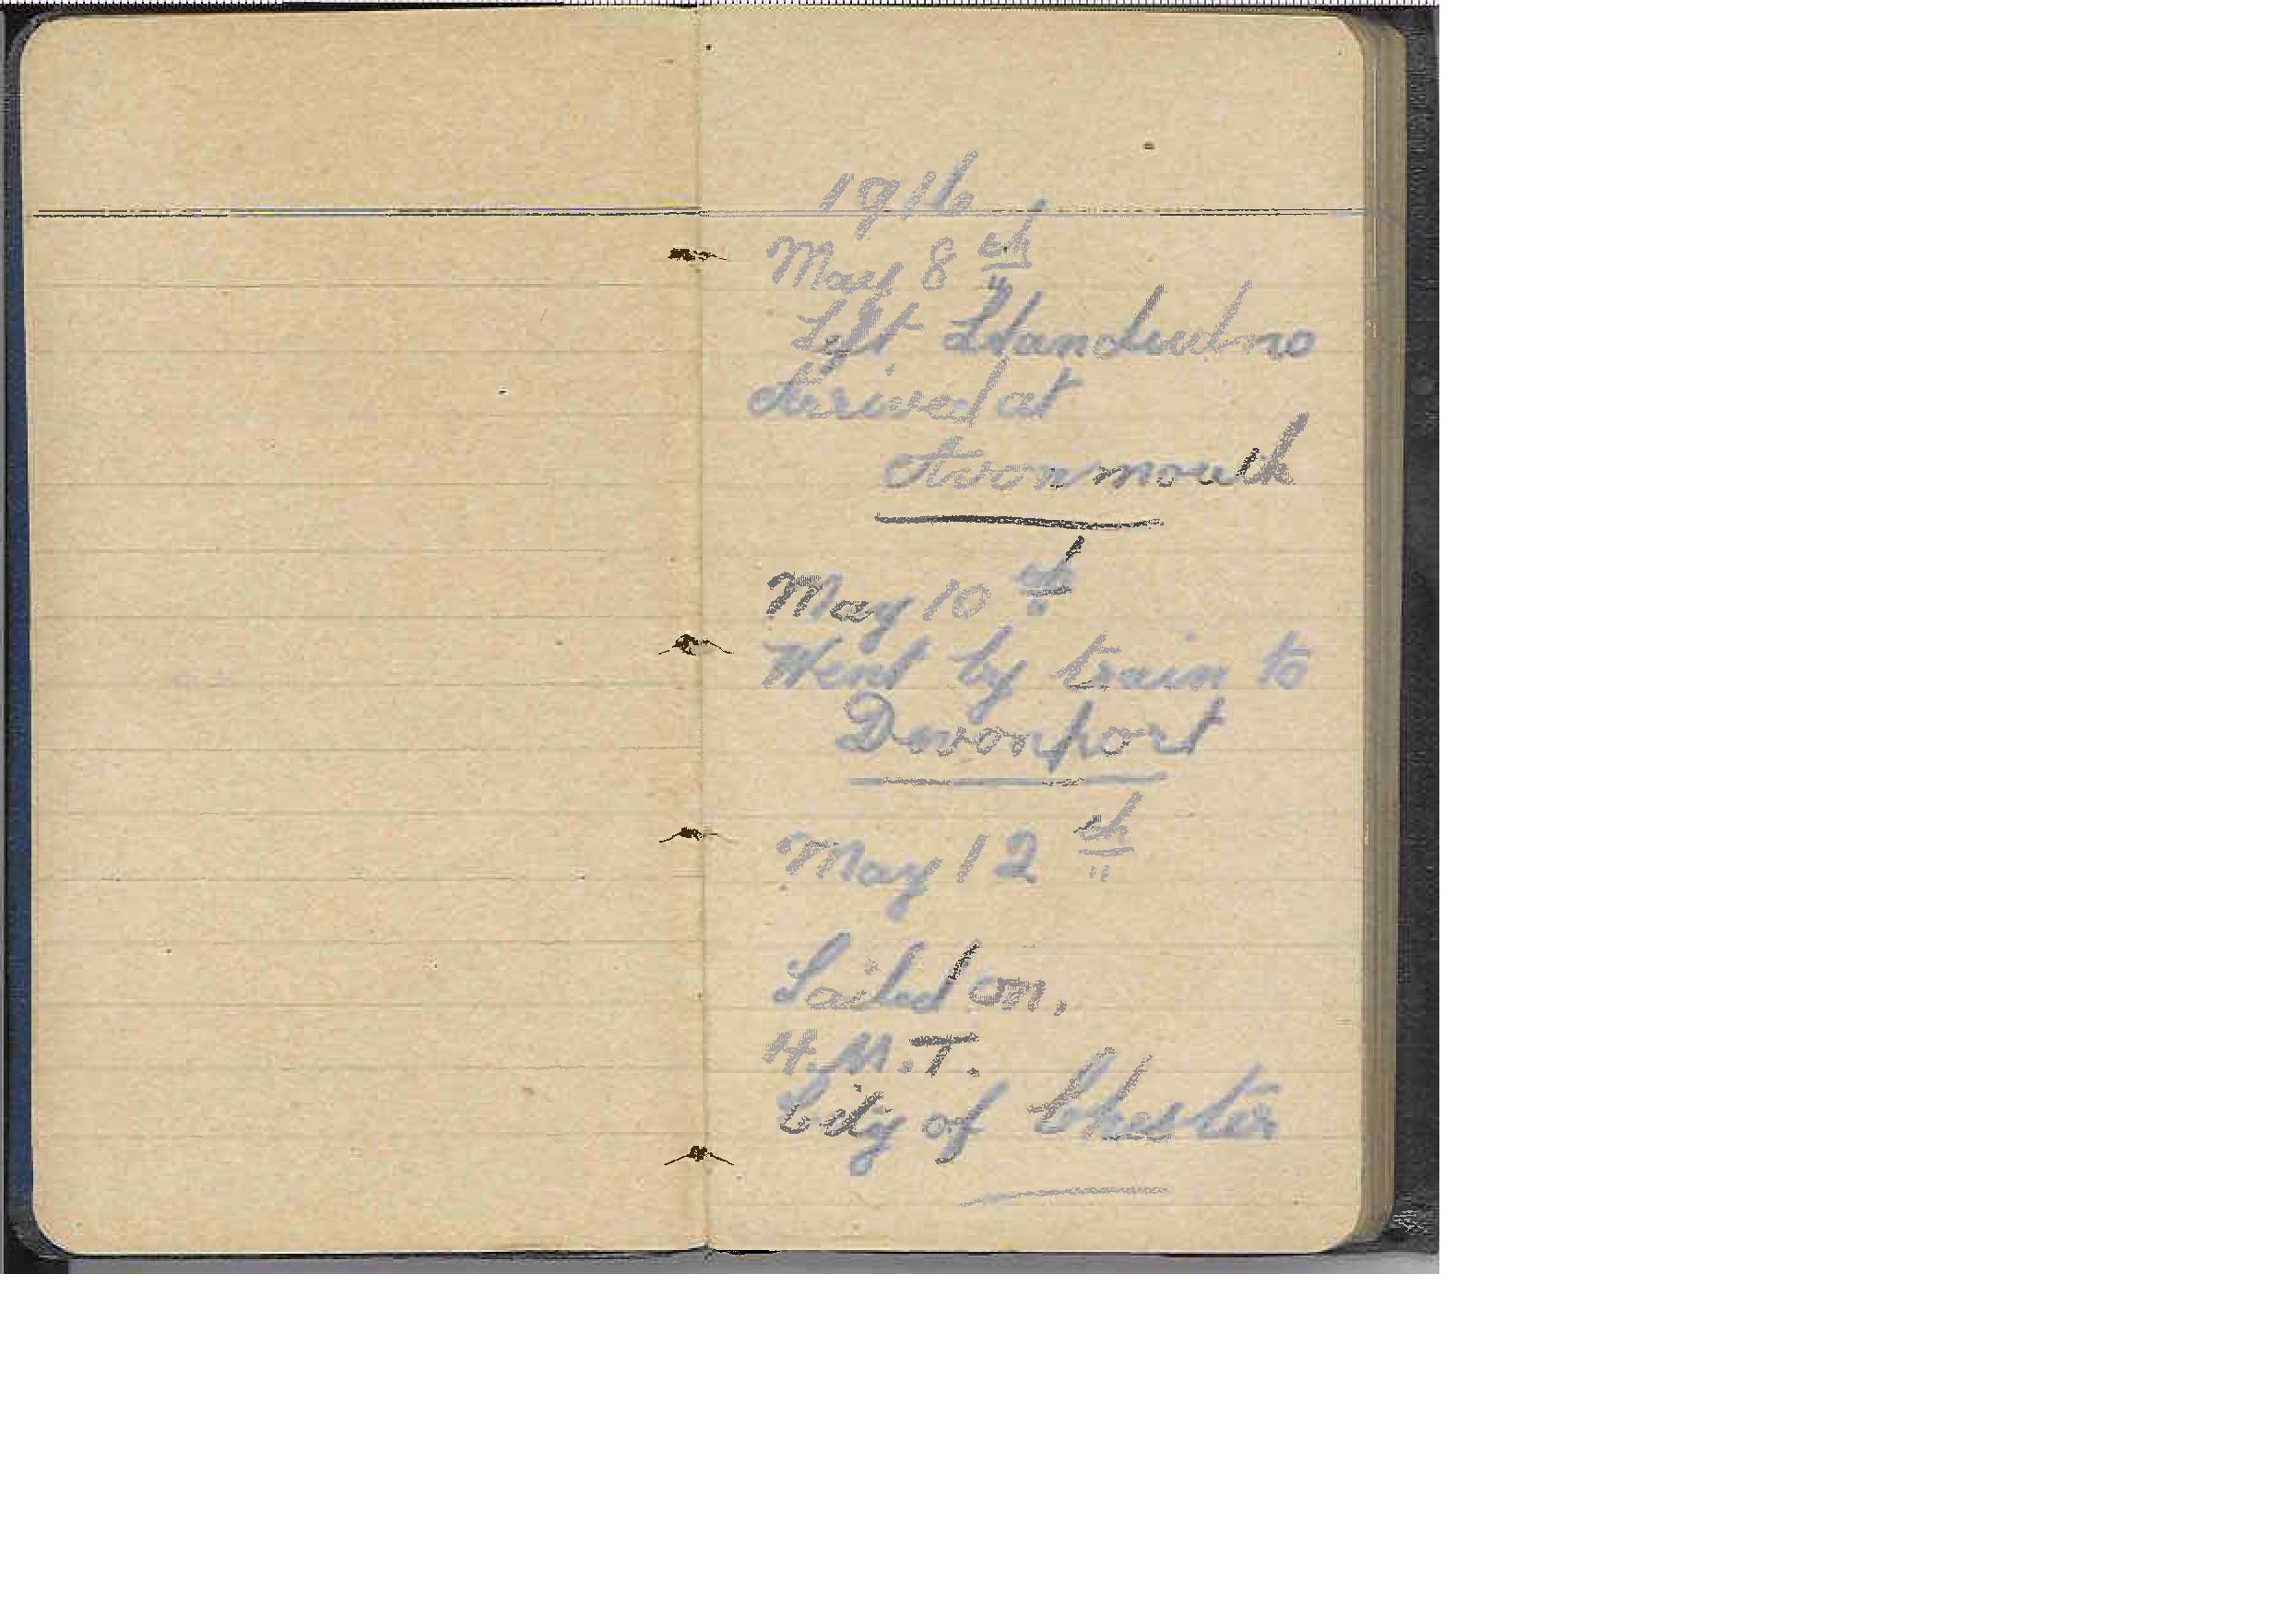 1916
May 8th
Left Llandudno
Arrived at
Avonmouth
May 10th
Went by train to
Devonport
May 12th
Sailed on,
H.M.T.
City of Chester